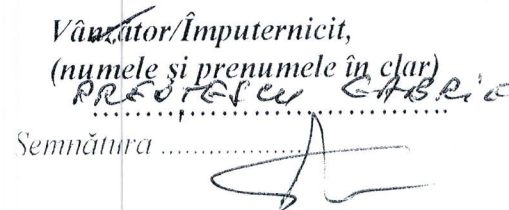 Vânzător/Împuternicit,
(numele și prenumele în clar)
PREOTESCU GABRIE
Semnătura ....................